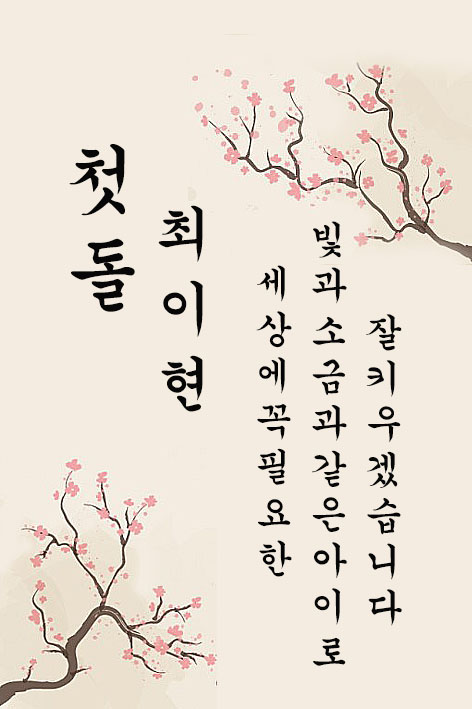 첫돌
최이현
세상에꼭필요한
빛과소금과같은아이로
잘키우겠습니다